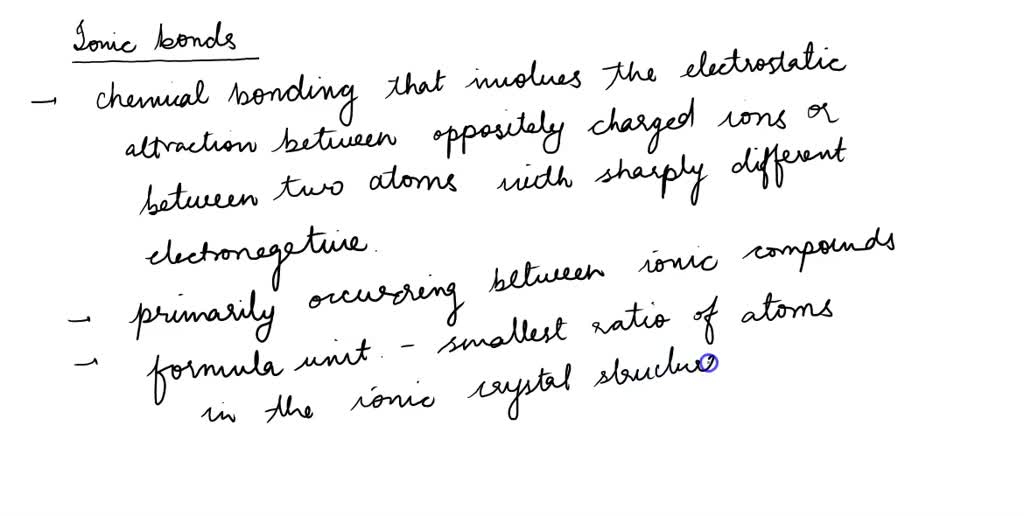 Ionic bonds
→ chemical bonding that involves the electrostatic
attraction between oppositely charged ions or
between two atoms with sharply different
electronegetive.
→ primarily occurring between ionic compounds
→ formula unit - smallest ratio of atoms
in the ionic crystal structure